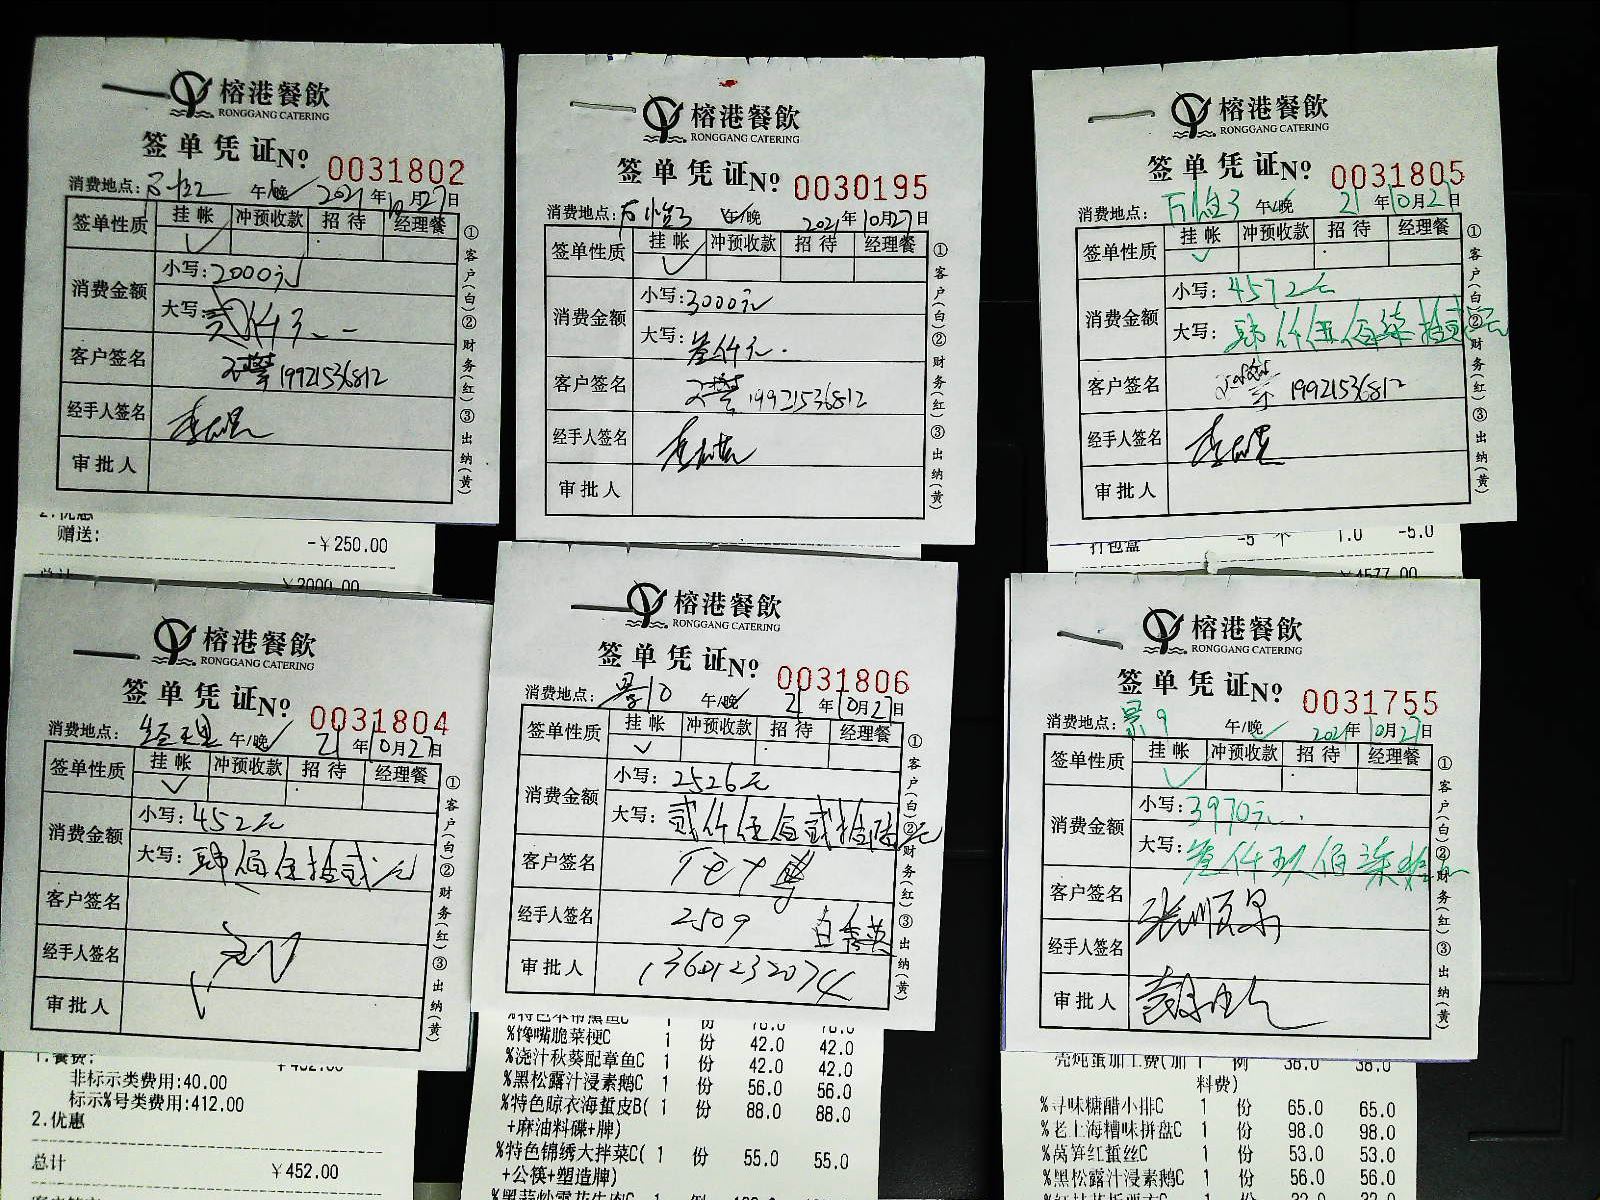 榕港餐飲
RONGGANG CATERING
签单凭证 Nº 0031802
消费地点: 午/晚 2021年10月27日
签单性质 挂帐 冲预收款 招待 经理餐
消费金额 小写:2000元
大写:贰仟元
客户签名 19921536812
经手人签名
审批人
①客户(白)②财务(红)③出纳(黄)
2.优惠
赠送: -¥250.00
总计 ¥2000.00
榕港餐飲
RONGGANG CATERING
签单凭证 Nº 0030195
消费地点: 午/晚 2021年10月27日
签单性质 挂帐 冲预收款 招待 经理餐
消费金额 小写:3000元
大写:叁仟元.
客户签名 19921536812
经手人签名
审批人
①客户(白)②财务(红)③出纳(黄)
榕港餐飲
RONGGANG CATERING
签单凭证 Nº 0031805
消费地点: 午/晚 21年10月27日
签单性质 挂帐 冲预收款 招待 经理餐
消费金额 小写:4572元
大写:肆仟伍佰柒拾贰元
客户签名 19921536812
经手人签名
审批人
①客户(白)②财务(红)③出纳(黄)
打包盒 -5 个 1.0 -5.0
¥4577.00
榕港餐飲
RONGGANG CATERING
签单凭证 Nº 0031804
消费地点: 经理 午/晚 21年10月27日
签单性质 挂帐 冲预收款 招待 经理餐
消费金额 小写:452元
大写:肆佰伍拾贰元
客户签名
经手人签名
审批人
①客户(白)②财务(红)③出纳(黄)
1.餐费: ¥452.00
非标示类费用:40.00
标示%号类费用:412.00
2.优惠
总计 ¥452.00
榕港餐飲
RONGGANG CATERING
签单凭证 Nº 0031806
消费地点: 景10 午/晚 21年10月27日
签单性质 挂帐 冲预收款 招待 经理餐
消费金额 小写:2526元
大写:贰仟伍佰贰拾陆元
客户签名
经手人签名 2509
审批人 13601232074
①客户(白)②财务(红)③出纳(黄)
%馋嘴脆菜梗C 1 份 42.0 42.0
%浇汁秋葵配章鱼C 1 份 42.0 42.0
%黑松露汁浸素鹅C 1 份 56.0 56.0
%特色晾衣海蜇皮B( 1 份 88.0 88.0
+麻油料碟+牌)
%特色锦绣大拌菜C( 1 份 55.0 55.0
+公筷+塑造牌)
榕港餐飲
RONGGANG CATERING
签单凭证 Nº 0031755
消费地点: 景9 午/晚 2021年10月27日
签单性质 挂帐 冲预收款 招待 经理餐
消费金额 小写:3970元
大写:叁仟玖佰柒拾元
客户签名
经手人签名
审批人
①客户(白)②财务(红)③出纳(黄)
壳炖蛋加工费(加 1 例 38.0 38.0
料费)
%寻味糖醋小排C 1 份 65.0 65.0
%老上海糟味拼盘C 1 份 98.0 98.0
%莴笋红蜇丝C 1 份 53.0 53.0
%黑松露汁浸素鹅C 1 份 56.0 56.0